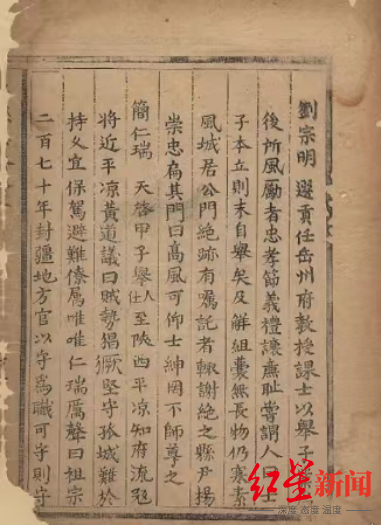 劉宗明 選貢任岳州府教授課士以舉子
後所風勵者忠孝節義禮讓廉耻嘗謂人曰
子本立則末自舉矣及解組囊無長物仍寒素
風城居公門絶跡有囑託者輙謝絶之縣尹揚
崇忠扁其門曰髙風可仰士紳罔不師尊之
簡仁瑞 天啓甲子舉人仕至陝西平凉知府流冦
將近平凉黄道議曰賊勢猖獗堅守孤城難於
持久宜保駕避難僚屬唯唯仁瑞厲聲曰祖宗
二百七十年封疆地方官以守為職可守則守
红星新闻
深度 态度 温度